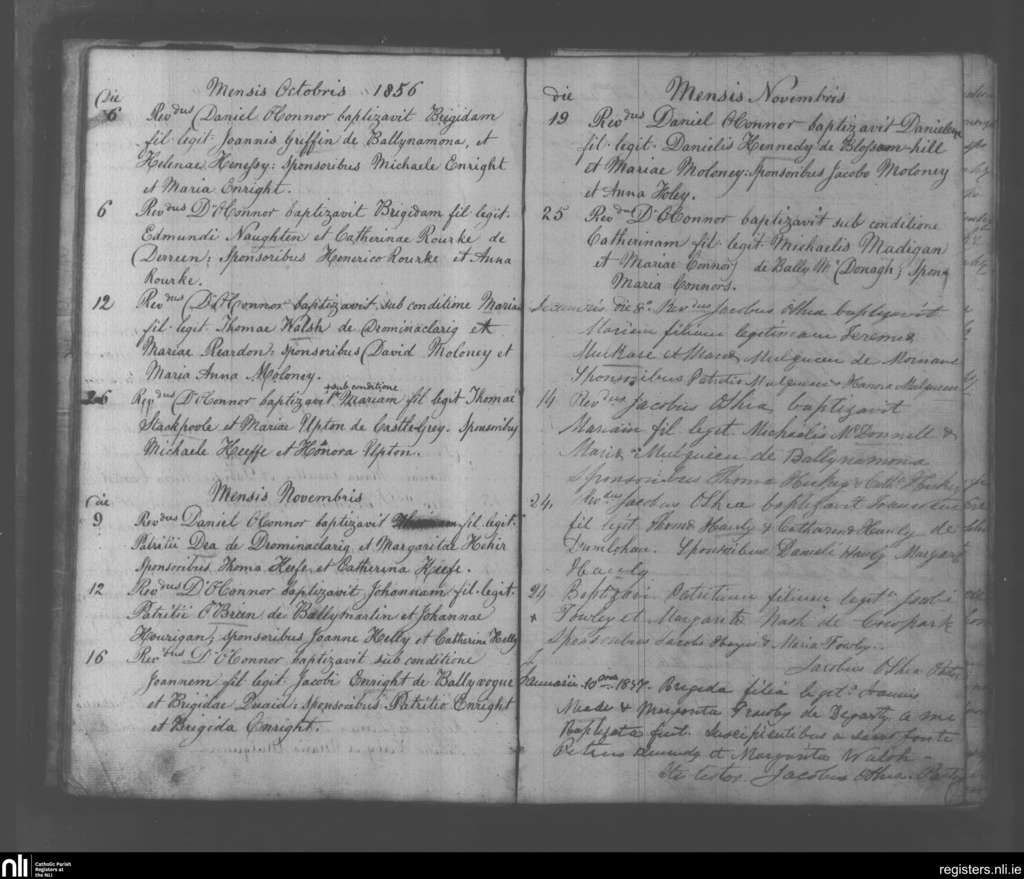 Mensis Octobris 1856
Die
6 Revdus Daniel O'Connor baptizavit Brigidam
fil legit Joannis Griffin de Ballynamona, et
Helenae Henessy: sponsoribus Michaele Enright
et Maria Enright.
6 Revdus D. O'Connor baptizavit Brigidam fil legit.
Edmundi Naughten et Catherinae Rourke de
Derreen; sponsoribus Henerico Rourke et Anna
Rourke.
12 Revdus D. O'Connor baptizavit sub conditione Mariam
fil legit Thomae Walsh de Drominaclarig et
Mariae Reardon: sponsoribus David Moloney et
Maria Anna Moloney.
+sub conditione
26 Revdus D. O'Connor baptizavit Mariam fil legit Thomae
Stackpoole et Mariae Upton de Castletgrey. Sponsoribus
Michaele Keeffe et Honora Upton.
Mensis Novembris
die
9 Revdus Daniel O'Connor baptizavit fil legit.
Patritii Dea de Drominaclarig, et Margaritae Hehir
sponsoribus Thoma Keefe et Catherina Keefe.
12 Revdus D. O'Connor baptizavit Johannam fil legit.
Patritii O'Brien de Ballymartin et Johannae
Hourigan; sponsoribus Joanne Kelly et Catherine Kelly
16 Revdus D. O'Connor baptizavit sub conditione
Joannem fil legit Jacobi Enright de Ballyvogue
et Brigidae Quaid: sponsoribus Patritio Enright
et Brigida Enright.
die Mensis Novembris
19 Revdus Daniel O'Connor baptizavit Danielem
fil legit. Danielis Kennedy de Blossom-hill
et Mariae Moloney: sponsoribus Jacobo Moloney
et Anna Foley.
25 Revd D. O'Connor baptizavit sub conditione
Catherinam fil legit Michaelis Madigan
et Mariae Connors de Bally Mc Donagh; Spons
Maria Connors.
die Revdus Jacobus OShea baptizavit
Mariam filiam legitimam
et Mulqueen de
Sponsoribus Patritio Mulqueen & Hanora Mulqueen
14 Revdus Jacobus OShea baptizavit
Mariam fil legit. Michaelis McDonnell &
Maria Mulqueen de Ballynamona
Sponsoribus Thoma
24 Revdus Jacobus OShea baptizavit
fil legit Hawly & Hawly de
Sponsoribus Daniele Hawly Margart
Hawly
24 Baptizavi Patritium filium legit
Fowley et Margarita Nash de Cowpark
Sponsoribus Jacobo & Maria Fowly.
Jacobus OShea
Januarii 10ma 1857. Brigida filia legit
Meade & Margarita de a me
Baptizata fuit. Suscipientibus a sacro fonte
Petrus Kennedy et Margarita Walsh
Ita testor Jacobus OShea
nli
Catholic Parish
Registers at
the NLI
registers.nli.ie